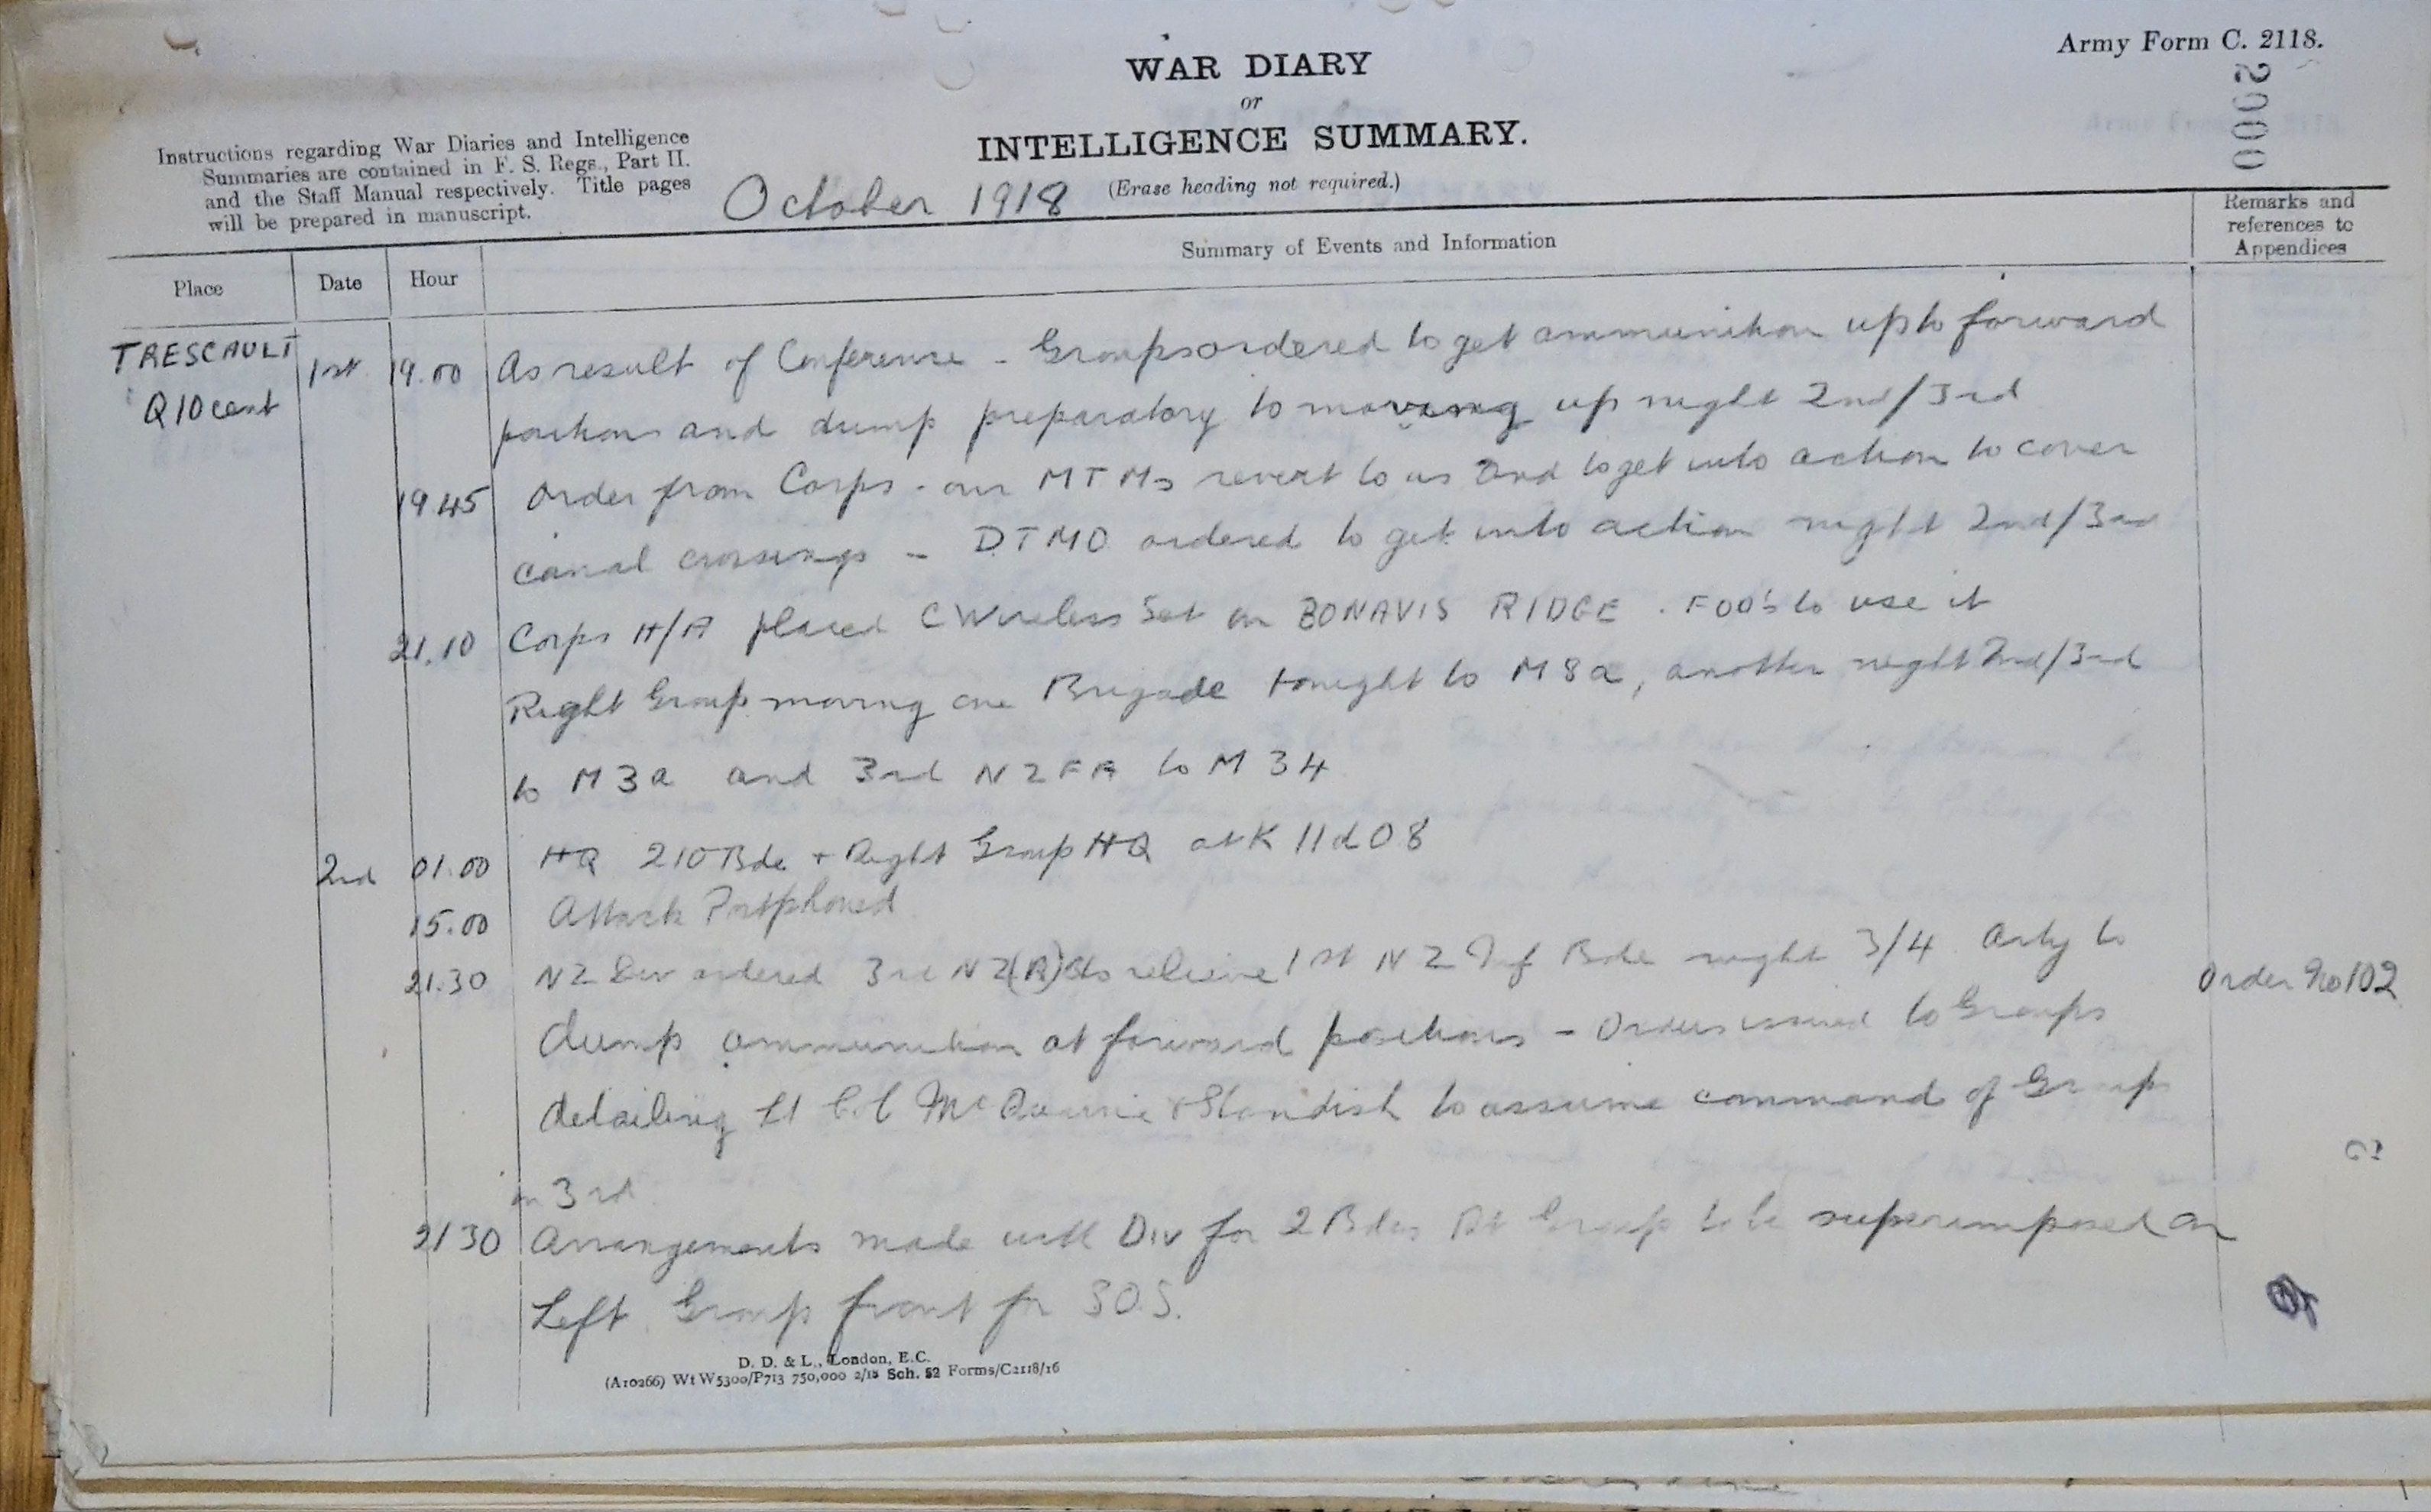 Army Form C. 2118.
2000
WAR DIARY
or
INTELLIGENCE SUMMARY.
(Erase heading not required.)
Instructions regarding War Diaries and Intelligence
Summaries are contained in F. S. Regs., Part II.
and the Staff Manual respectively. Title pages
will be prepared in manuscript.
October 1918
Place Date Hour Summary of Events and Information Remarks and references to Appendices
TRESCAULT 1st 19.00 As result of Conference - Groups ordered to get ammunition up to forward
Q10cent positions and dump preparatory to moving up night 2nd/3rd
19.45 Order from Corps - our MTMs revert to us and to get into action to cover
canal crossings - DTMO ordered to get into action night 2nd/3rd
21.10 Corps H/A placed C Wireless Set on BONAVIS RIDGE. FOO's to use it
Right Group moving one Brigade tonight to M8a, another night 2nd/3rd
to M3a and 3rd NZFA to M34
2nd 01.00 HQ 210 Bde + Right Group HQ at K11d08
15.00 Attack Postphoned
21.30 NZ Div ordered 3rd NZ(R) to relieve 1st NZ Inf Bde night 3/4 Arty to Order No 102
dump ammunition at forward positions - Orders issued to Groups
detailing Lt Col & Standish to assume command of Group
on 3rd
2130 Arrangements made with Div for 2 Bdes Rt Group to be superimposed on
Left Group front for SOS.
D. D. & L., London, E.C.
(A10266) Wt W5300/P713 750,000 2/18 Sch. 52 Forms/C2118/16